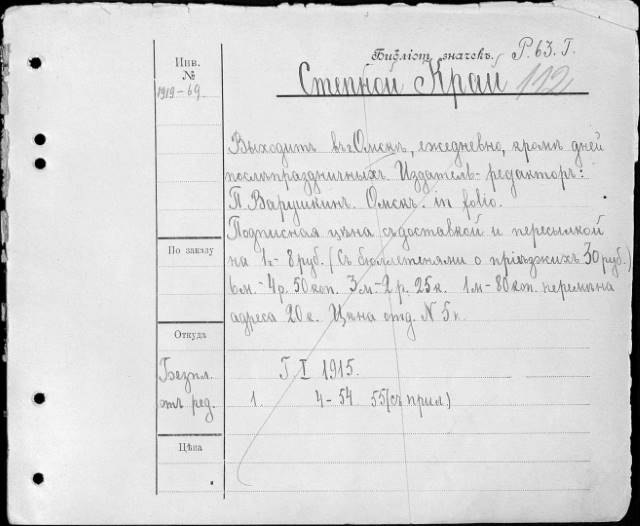 Библіот. значекъ. Р. 63. Г.
Инв.
№
1919-69
Степной Край
112
Выходитъ въ г. Омскѣ, ежедневно, кромѣ дней
послѣпраздничныхъ. Издатель-редакторъ:
П. Варушкинъ. Омскъ. in folio.
Подписная цѣна съ доставкой и пересылкой
на 1 г.- 8 руб. (съ бюллетенями о пріѣзжихъ 30 руб.)
6 м.- 4 р. 50 коп. 3 м.- 2 р. 25 к. 1 м- 80 коп. перемѣна
адреса 20 к. Цѣна отд. N 5 к.
По заказу
Откуда
Безпл.
отъ ред.
Г I 1915.
1. 4-54 55 (съ прил)
Цѣна